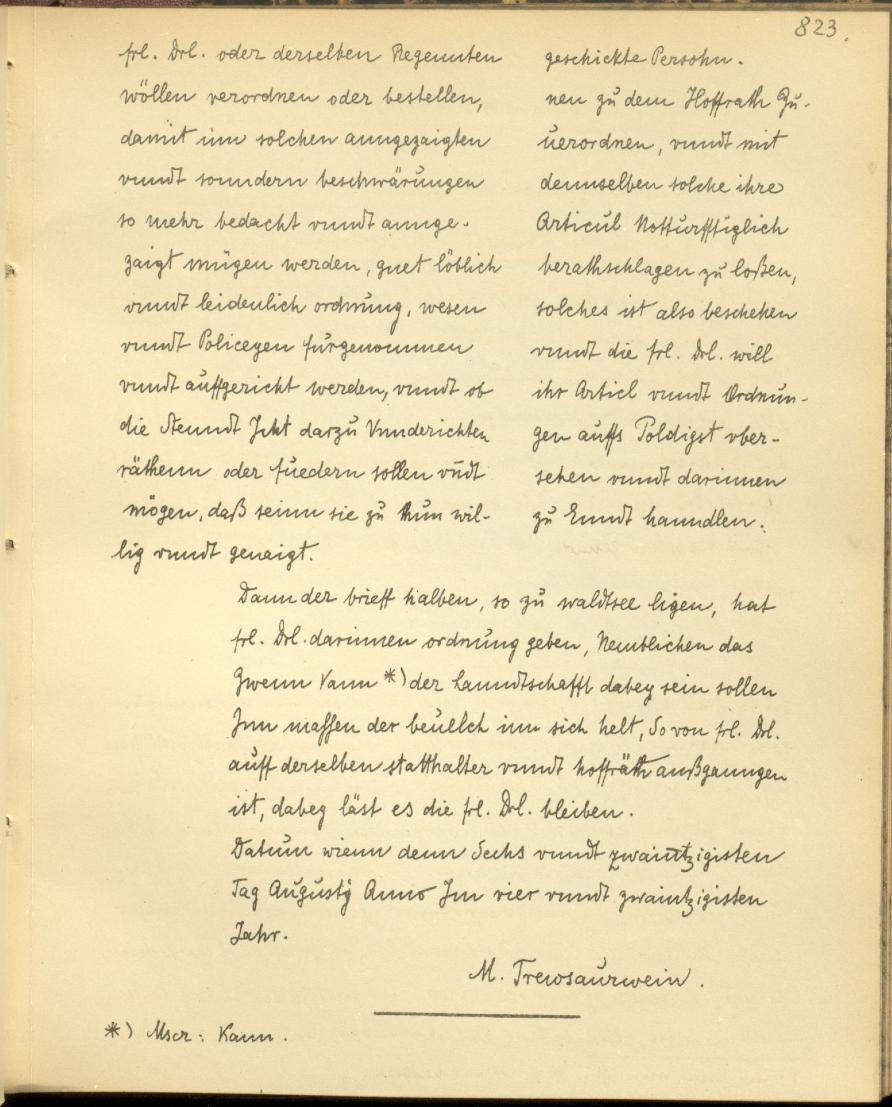 823.
frl. Drl. oder derselben Regennten
wöllen verordnen oder bestellen,
damit inn solchen anngezaigten
vnndt sonndern beschwärungen
so mehr bedacht vnndt annge-
zaigt mügen werden, guet löblich
vnndt leidenlich ordnung, wesen
vnndt Policeyen fürgenommen
vnndt auffgericht werden, vnndt ob
die Stenndt Icht darzu Vnnderichten
räthenn oder fuedern sollen vn̄dt
mögen, daß seinn sie zu thun wil-
lig vnndt genaigt.
geschickte Persohn.
nen zu dem Hoffrath Zu-
uerordnen, vnndt mit
dennselben solche ihre
Articul Notturfftiglich
berathschlagen zu loßen,
solches ist also beschehen
vnndt die frl. Drl. will
ihr Articl vnndt Ordnun-
gen auffs Poldigst vber-
sehen vnndt darinnen
zu Enndt hanndlen.
Dann der brieff halben, so zu waldtsee ligen, hat
frl. Drl. darinnen ordnung geben, Nemblichen das
Zwenn Vann *) der Lanndtschafft dabey sein sollen
Inn massen der beuelch inn sich helt, So von frl. Drl.
auff derselben statthalter vnndt hoffräth außganngen
ist, dabey läst es die frl. Drl. bleiben.
Datum wienn denn Sechs vnndt zwaintzigisten
Tag Augustÿ Anno Im vier vnndt zwaintzigisten
Jahr.
M. Treiosaurwein.
*) Mscr: Kann.